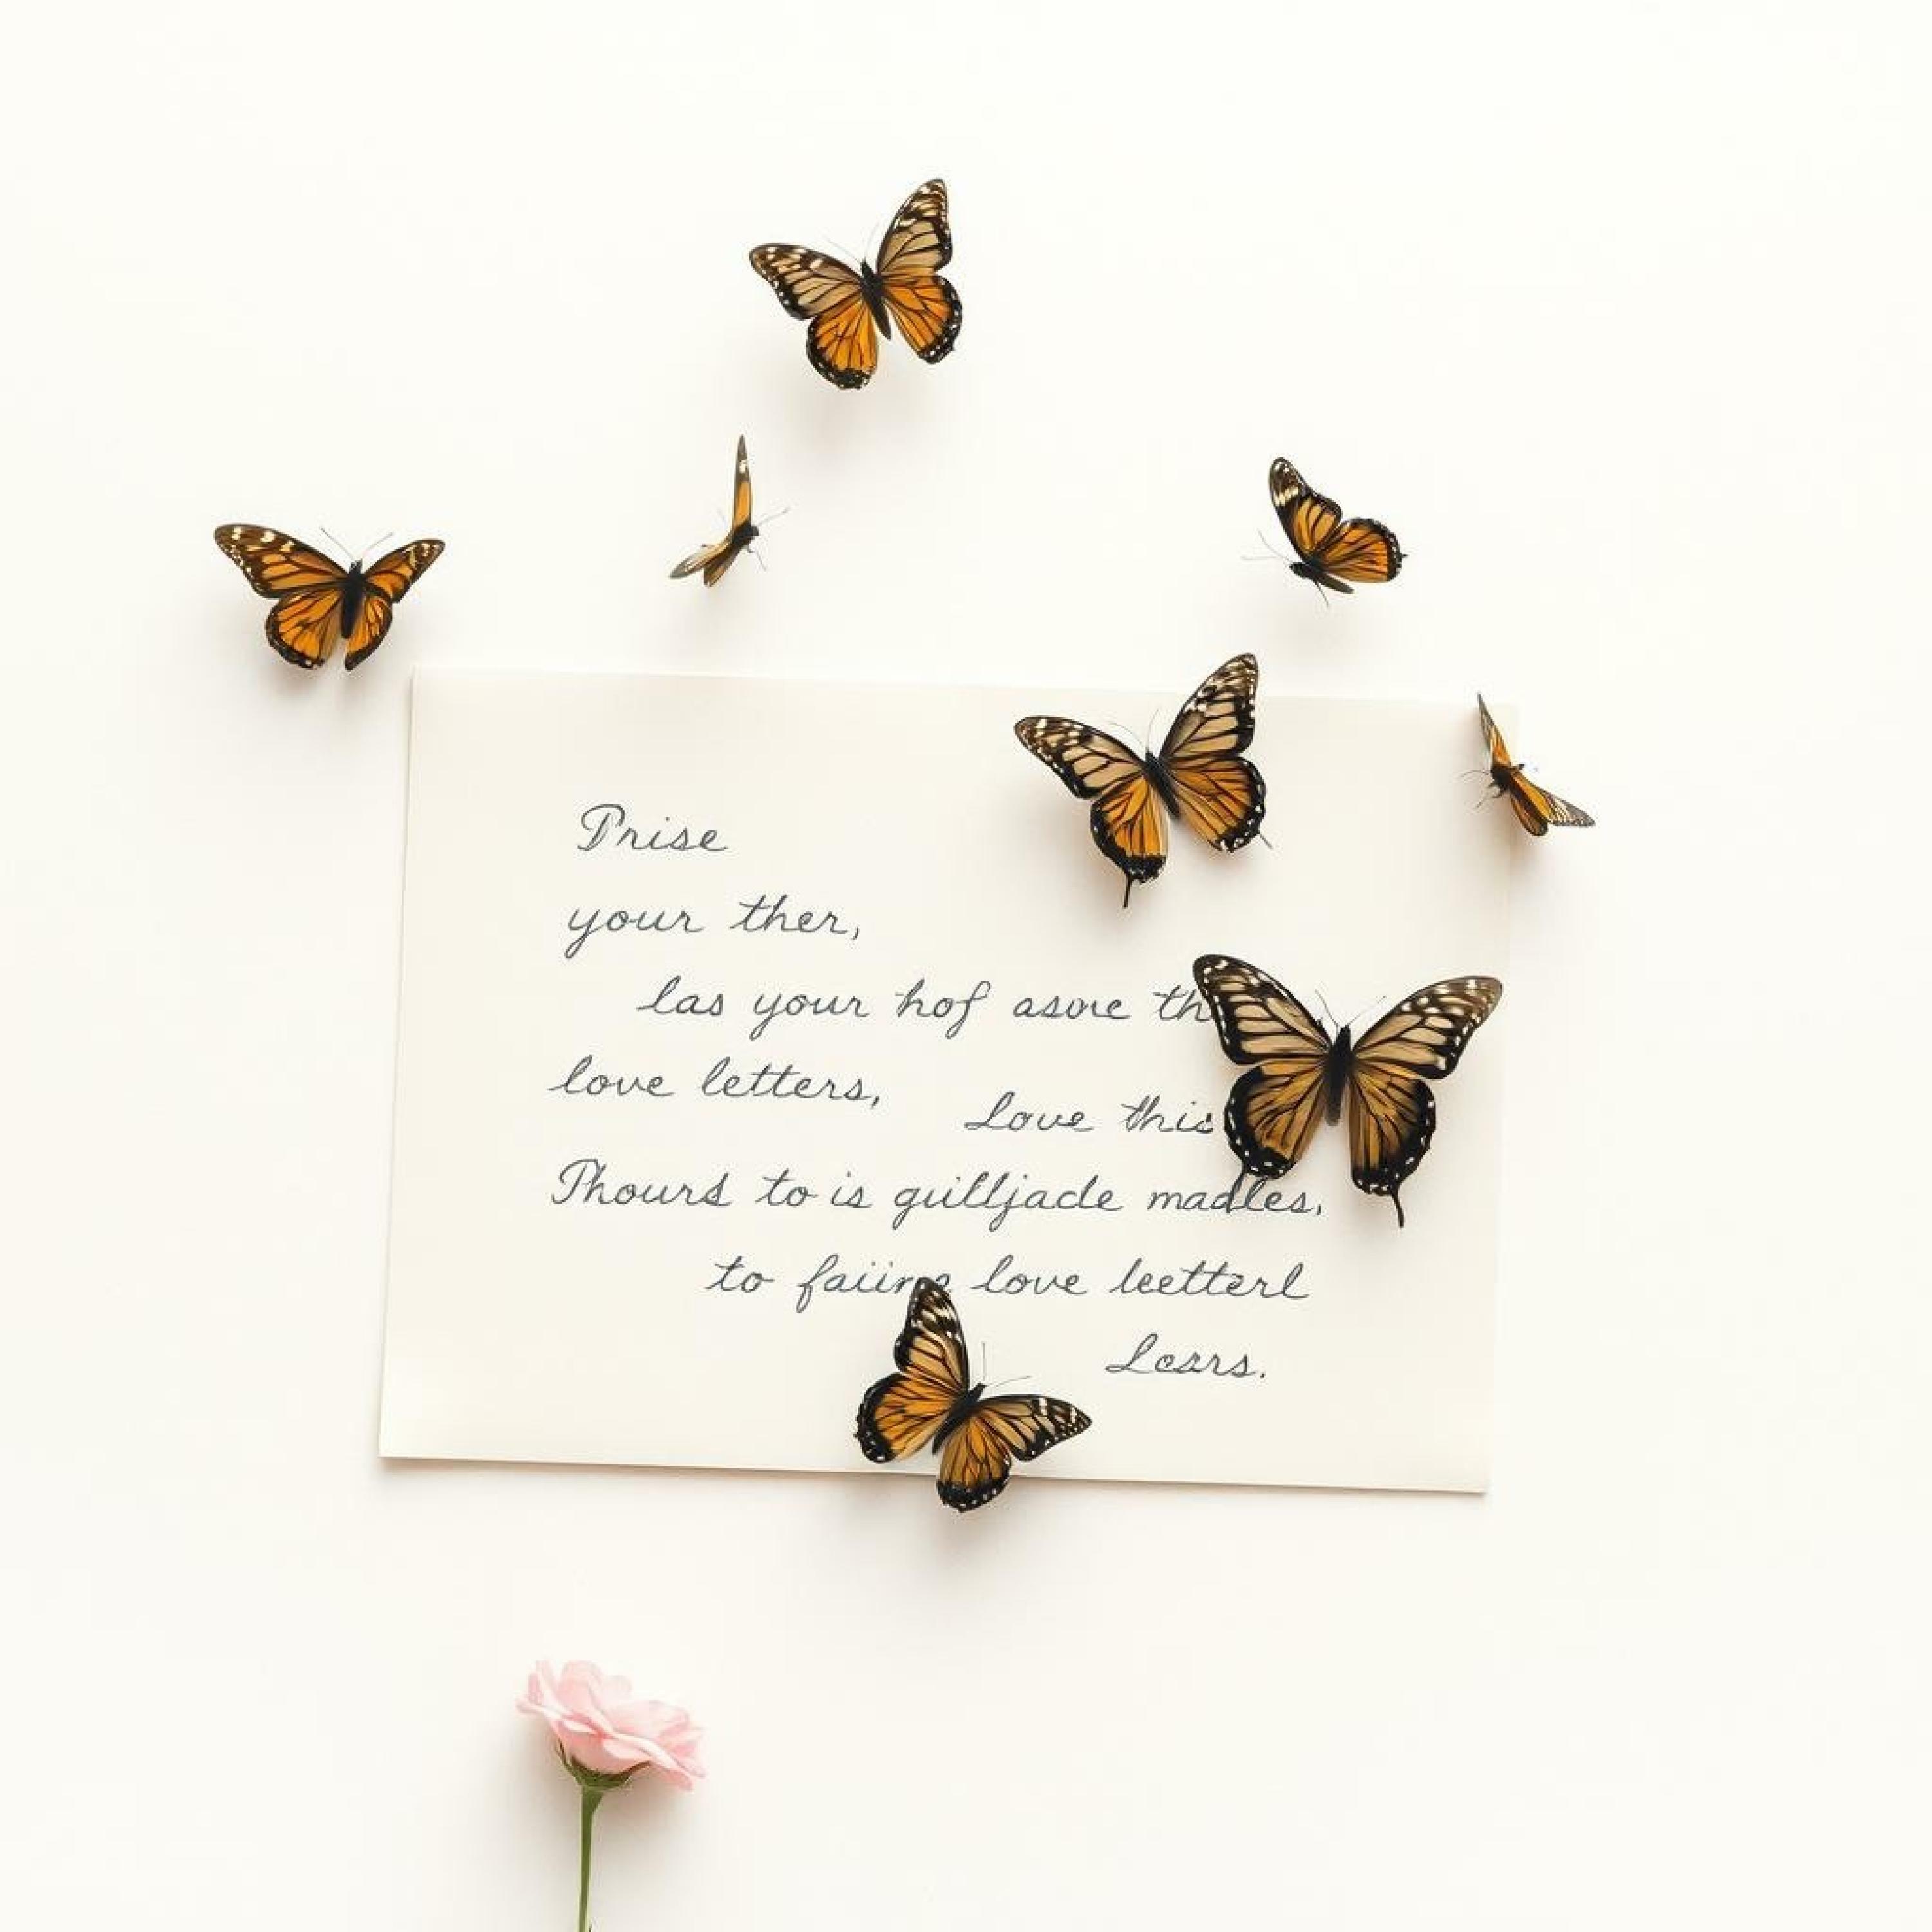 Prise
your ther,
las your hof asore th
love letters,
Love this
Phours to is guilljade madles,
to love leetterl
Lears.